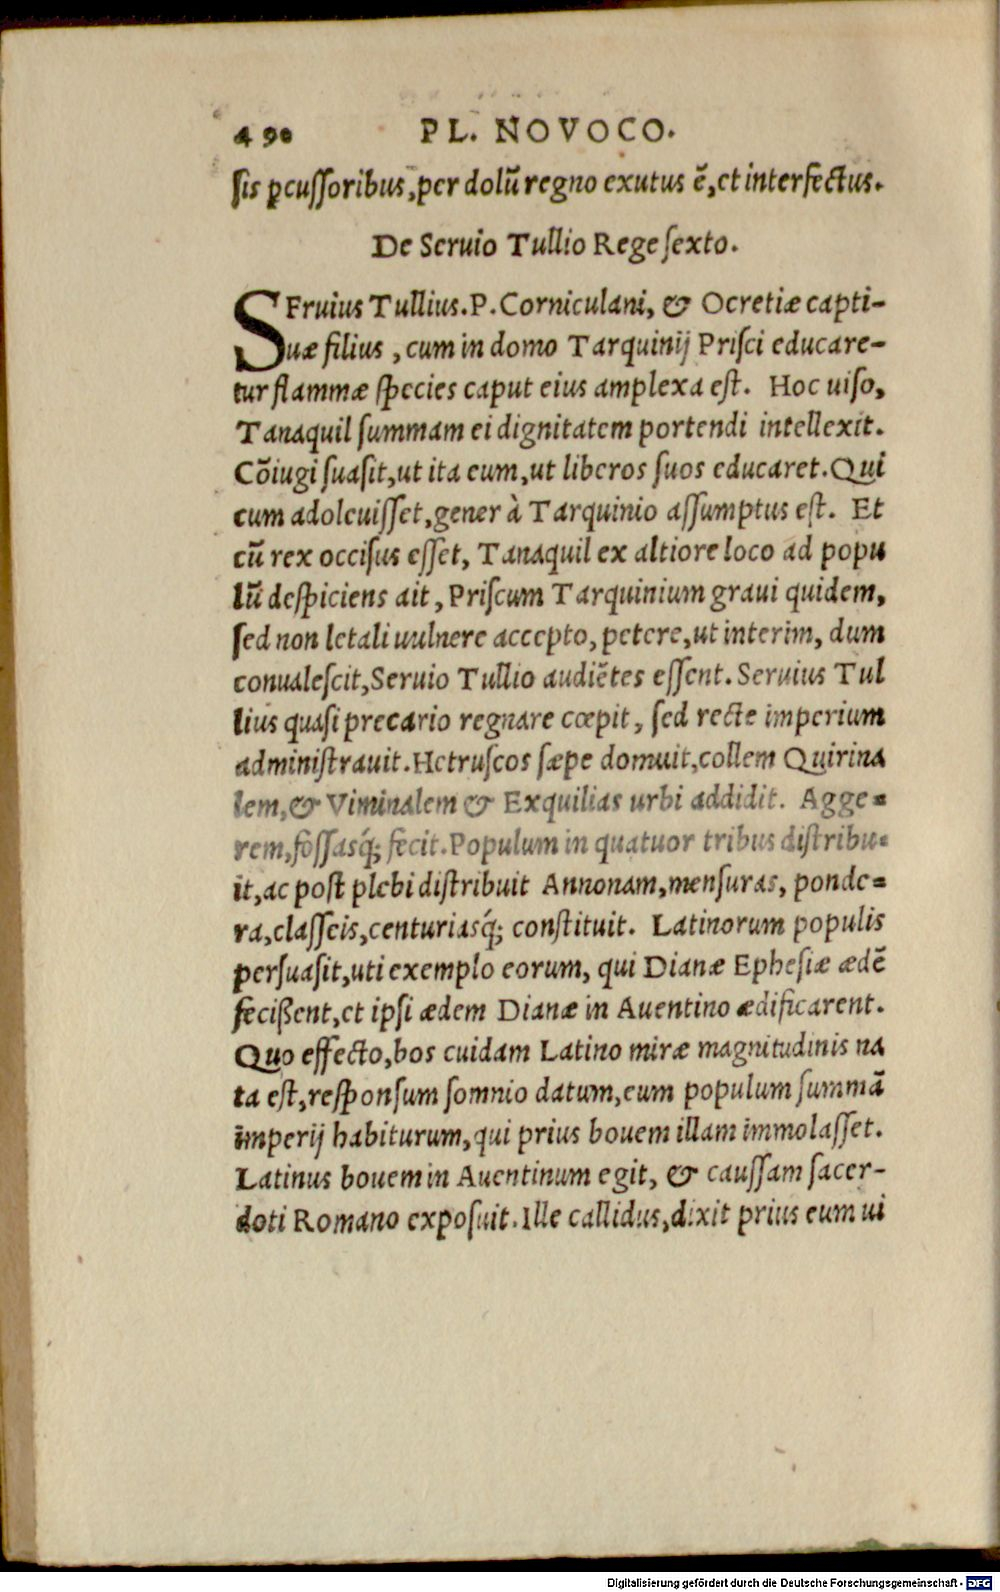 490 PL. NOVOCO.
ſis ꝑcuſſoribus, per dolū regno exutus ē, et interfectus.
De Seruio Tullio Rege ſexto.
SEruius Tullius. P. Corniculani, & Ocretiæ capti-
uæ filius, cum in domo Tarquinij Priſci educare-
tur flammæ ſpecies caput eius amplexa eſt. Hoc uiſo,
Tanaquil ſummam ei dignitatem portendi intellexit.
Cōiugi ſuaſit, ut ita eum, ut liberos ſuos educaret. Qui
cum adoleuiſſet, gener à Tarquinio aſſumptus eſt. Et
cū rex occiſus eſſet, Tanaquil ex altiore loco ad popu
lū deſpiciens ait, Priſcum Tarquinium graui quidem,
ſed non letali uulnere accepto, petere, ut interim, dum
conualeſcit, Seruio Tullio audiētes eſſent. Seruius Tul
lius quaſi precario regnare cœpit, ſed recte imperium
adminiſtrauit. Hetruſcos ſæpe domuit, collem Quirina
lem, & Viminalem & Exquilias urbi addidit. Agge-
rem, foſſasq́; fecit. Populum in quatuor tribus diſtribu-
it, ac poſt plebi diſtribuit Annonam, menſuras, ponde-
ra, claſſeis, centuriasq́; conſtituit. Latinorum populis
perſuaſit, uti exemplo eorum, qui Dianæ Epheſiæ ædē
fecißent, et ipſi ædem Dianæ in Auentino ædificarent.
Quo effecto, bos cuidam Latino miræ magnitudinis na
ta eſt, reſponſum ſomnio datum, eum populum ſummā
imperij habiturum, qui prius bouem illam immolaſſet.
Latinus bouem in Auentinum egit, & cauſſam ſacer-
doti Romano expoſuit. Ille callidus, dixit prius eum ui
Digitalisierung gefördert durch die Deutsche Forschungsgemeinschaft - DFG